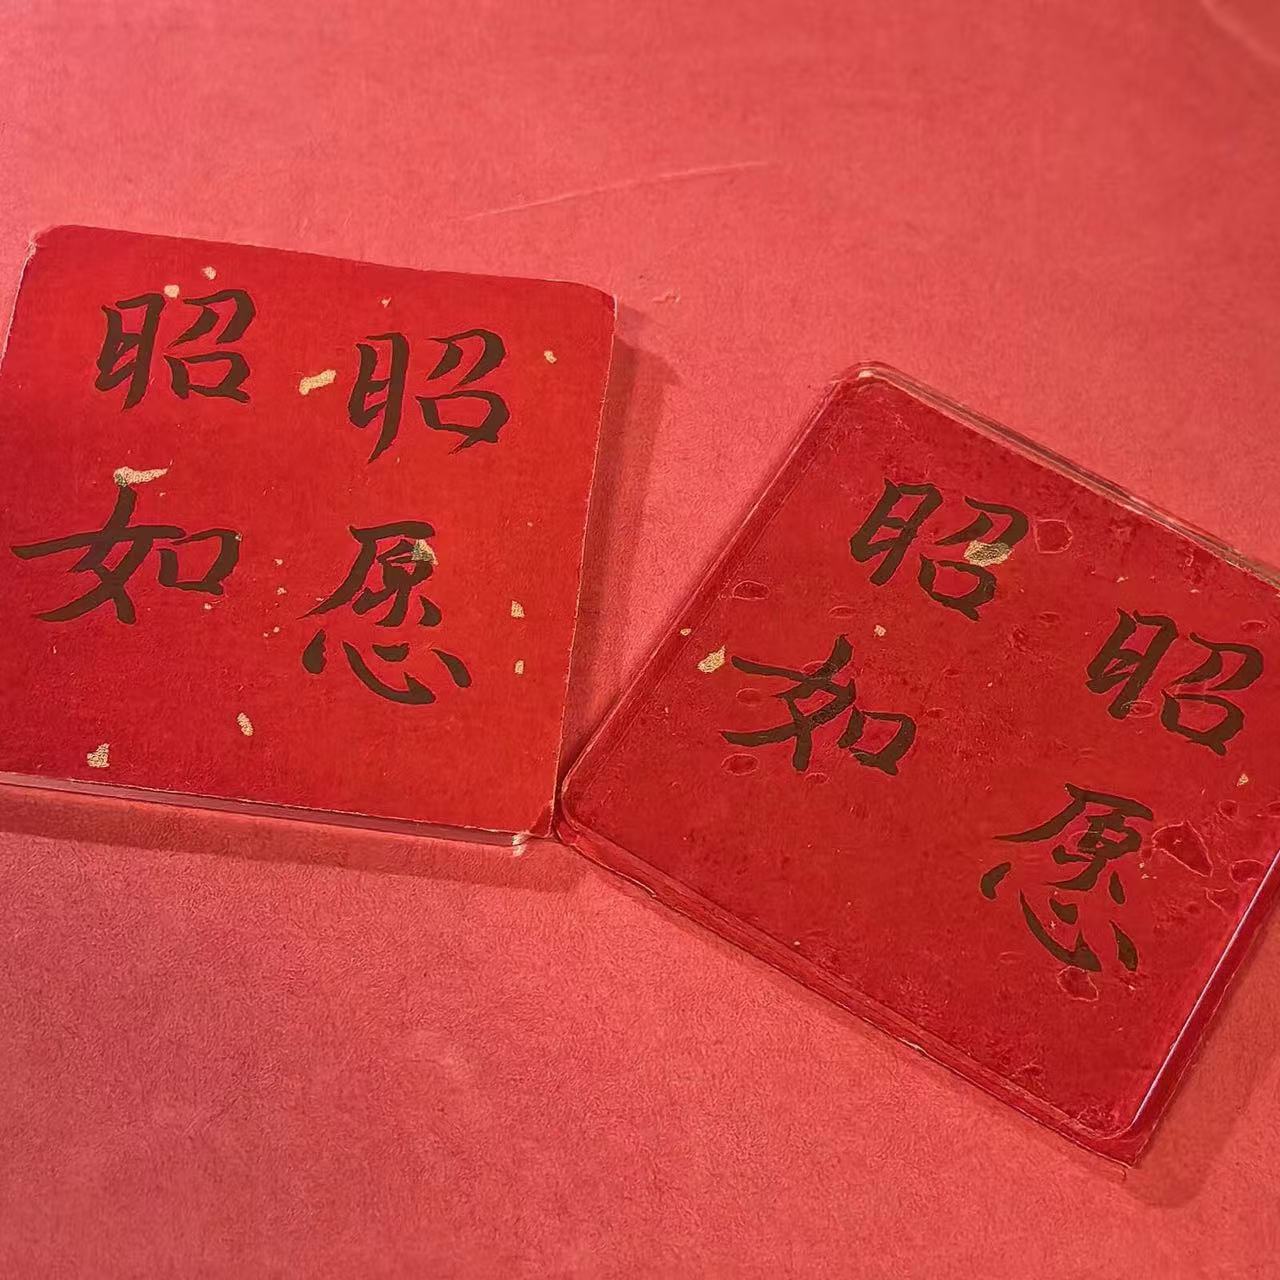 昭昭
如愿
昭昭
如愿